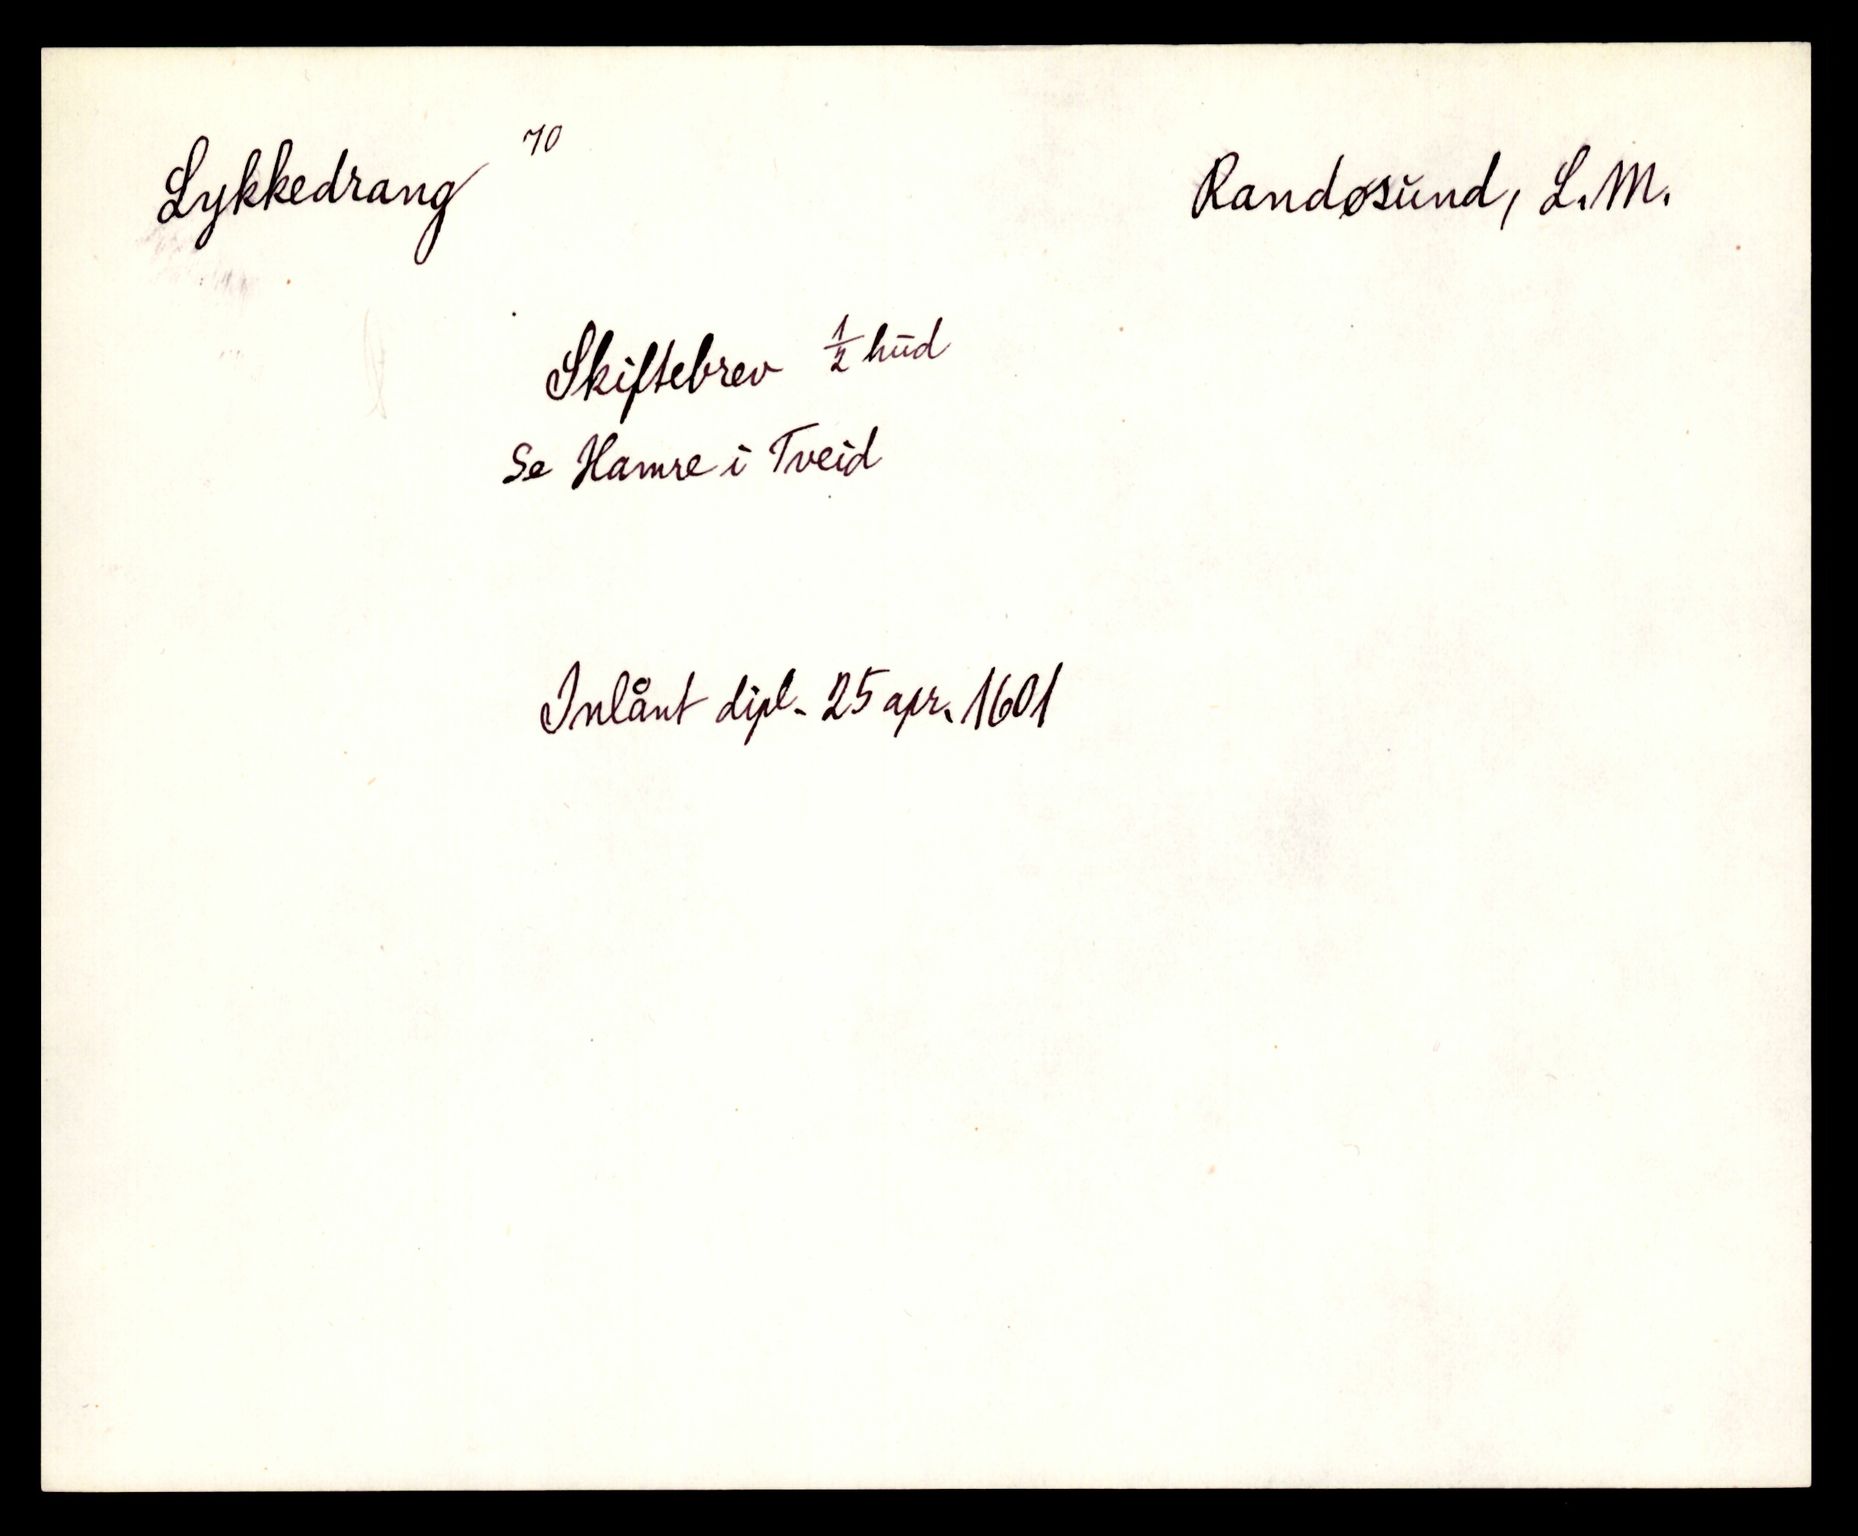 Lykkedrang 70 Randøsund, L.M.
Skiftebrev ½ hud
Se Hamre i Tveid
Inlånt dipl. 25 apr. 1601